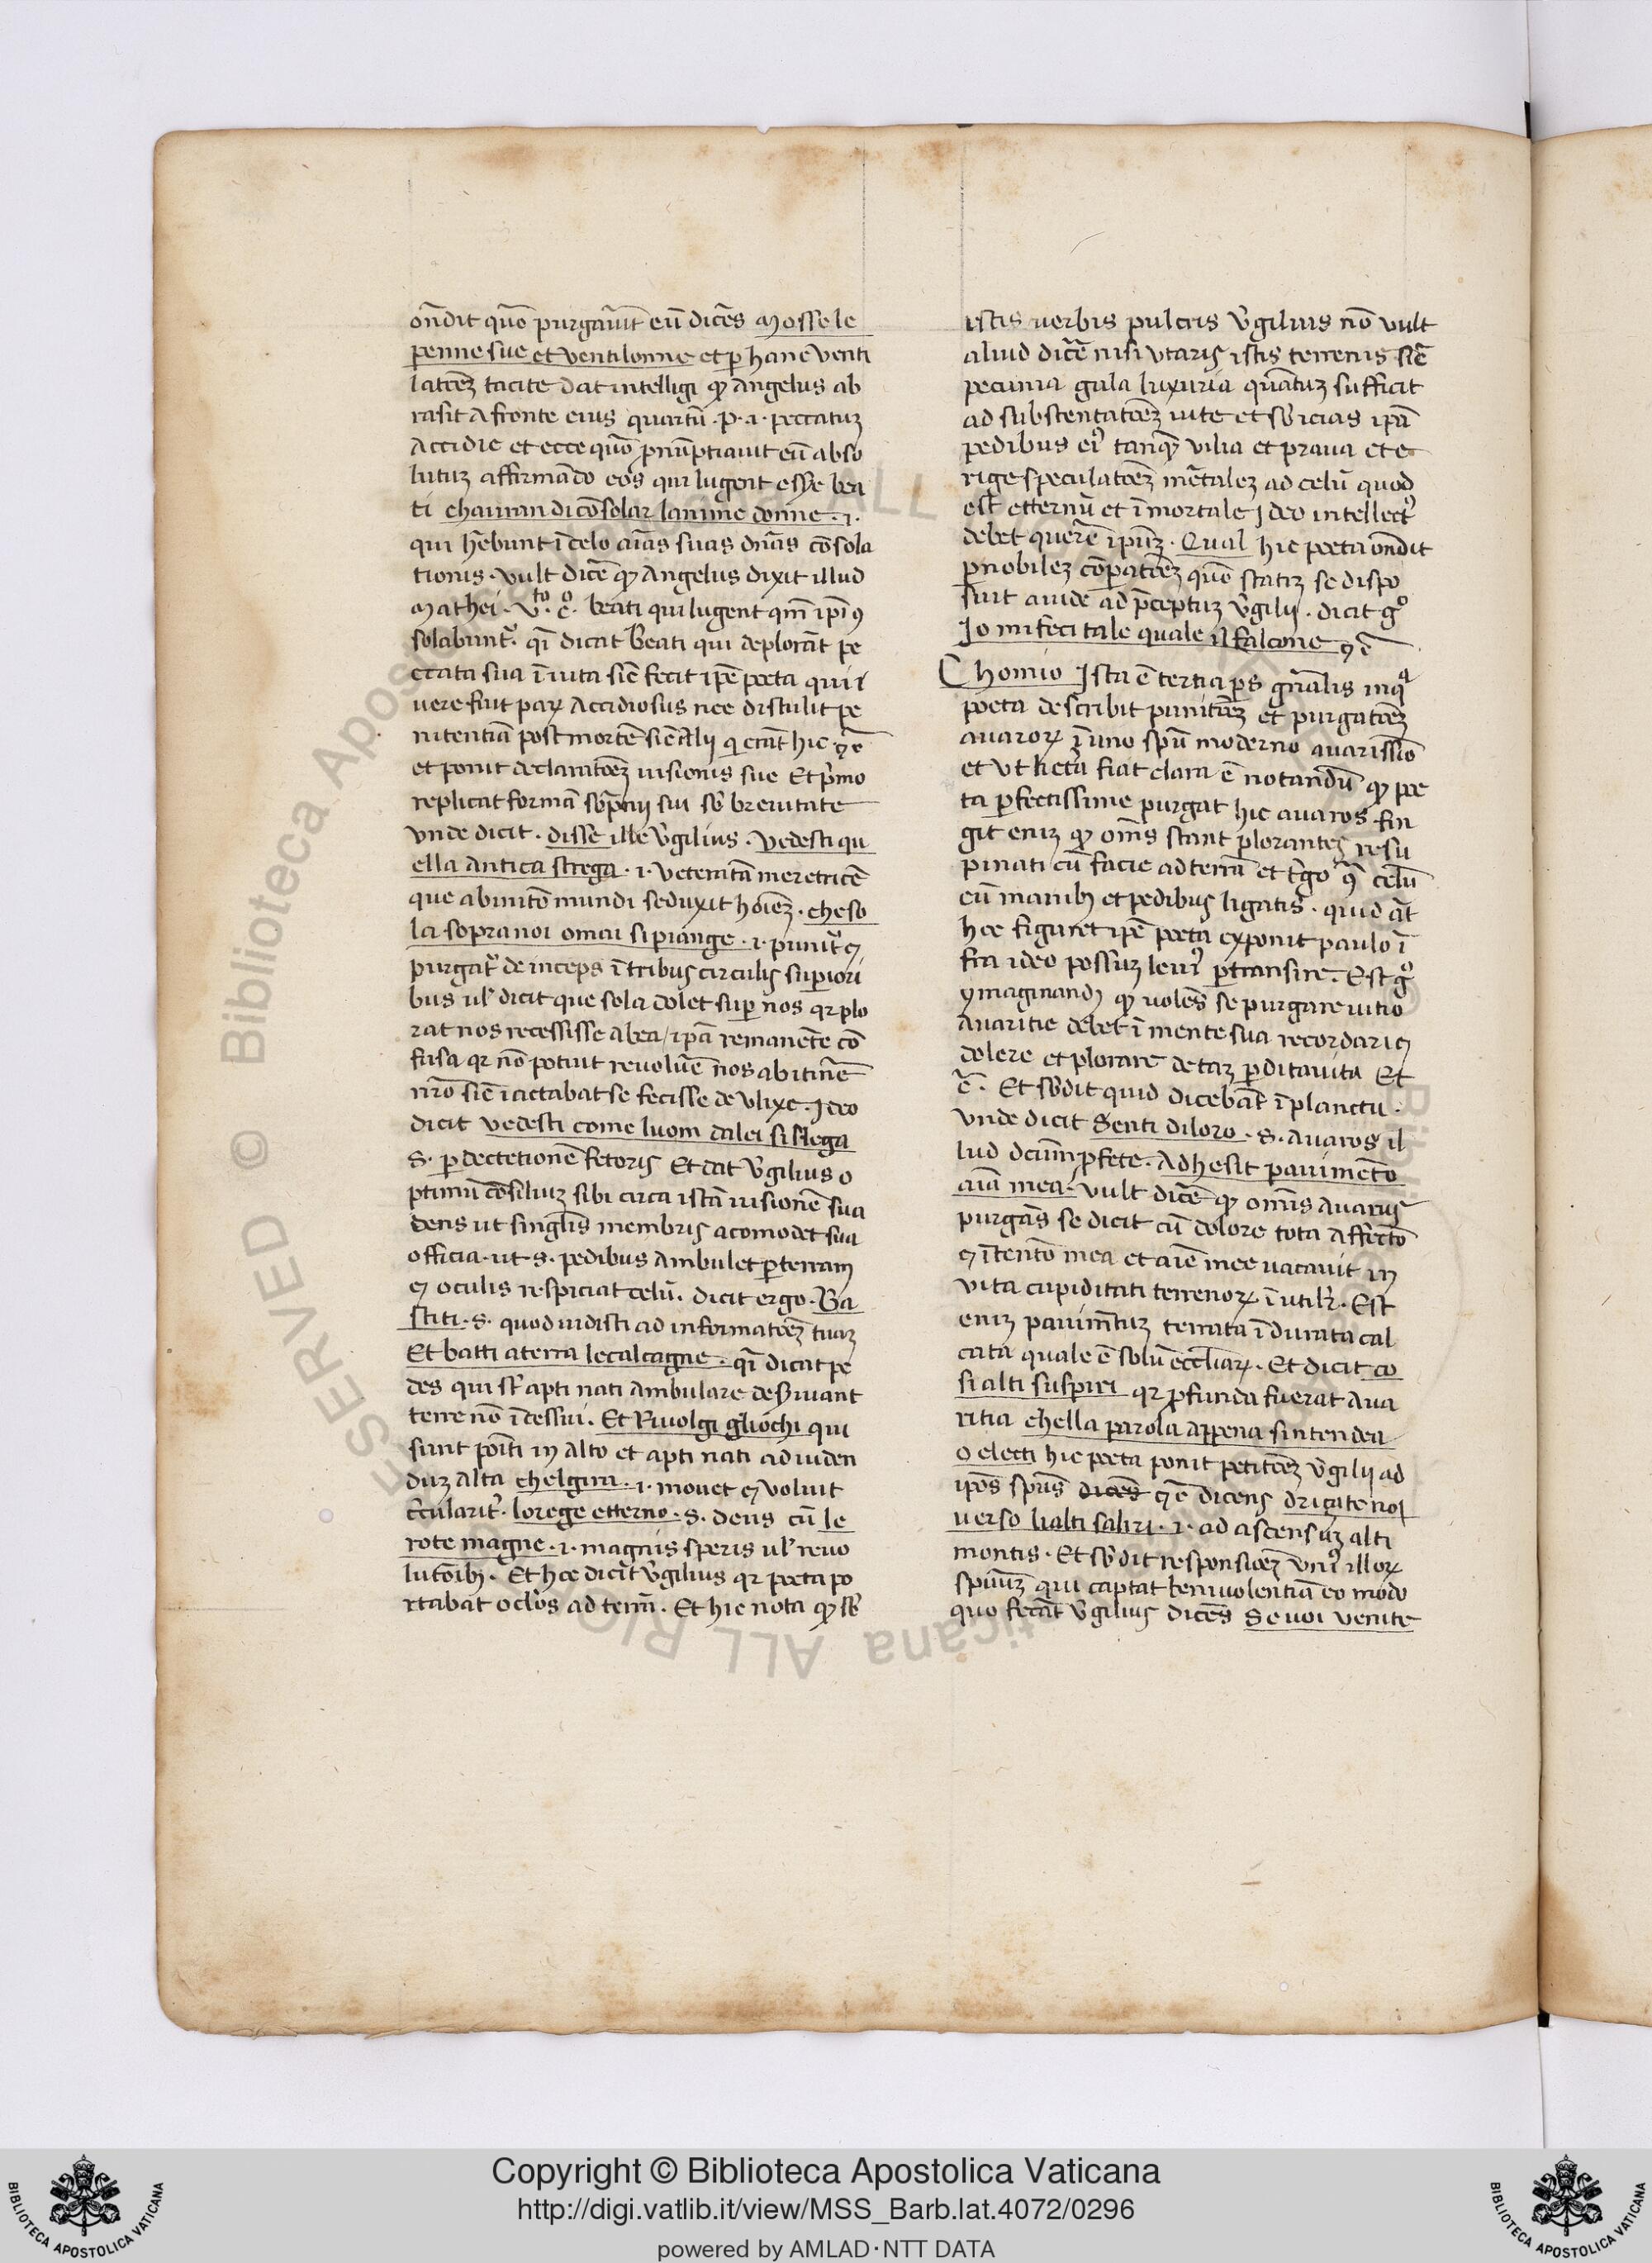 ōndit quō purgauit eū dicēs mosse le
penne sue et ventilonne et p hanc venti
latōez tacite dat intelligi q angelus ab
rasit a fronte eius quartū .p. i. peccatuz
Accidie et ecce quō pnūptiauit eū abso
lutuz affirmādo eos qui lugent esse bea
ti chauran di cōsolar lanime donne .i.
qui hēbunt ī celo aīas suas dnās cōsola
tionis. vult dicē q Angelus dixit illud
mathei .vto. co. beati qui lugent qm ipi 9
solabunt. qī dicat beati qui deplorāt pe
ccata sua ī uita sic fecit ipe poeta qui
uere fuit pax Accidiosus nec distulit pe
nitentiā post mortē sic alij q erāt hic
et ponit declaratōez uisionis sue Et pmo
replicat formā sōpnij sui sb breuitate
vnde dicit. disse ille vgilius. vedesti qu
ella antica strega .i. veteratā meretricē
que ab initō mundi seduxit hoīez. che so
la sopra noi omai si piange .i. punit
purgat de inceps ī tribus circulis supiori
bus ul dicit que sola dolet sup nos qr plo
rat nos recessisse ab ea / ipā remanēte cō
fusa qr nō potuit reuoluē nos ab itinē
nrō sic iactabat se fecisse de vlixe. Ideo
dicit vedesti come luom dalei si slega
s. p dectetionē fetoris Et dat vgilius o
ptimū cōsiliuz sibi circa istā uisionē sua
dens ut singlis membris acomodet sua
officia. ut s. pedibus ambulet p terram
oculis respiciat celū. dicit ergo. Ba
stiti. s. quod uidisti ad informatōez tuaz
Et batti a terra le calcagne. qī dicat pe
des qui st apti nati ambulare deseruiant
terre nō ī dessui. Et Riuolgi gliochi qui
sunt poīti in alto et apti nati ad uiden
duz alta chelgira .i. mouet voluit
circularit. lorege etterno. s. deus cū le
rote magne .i. magnis speris ul reuo
lutōib. Et hec dicit vgilius qr poeta po
rtabat oclos ad terrā. Et hic nota q sb
istis uerbis pulcris vgilius nō vult
aliud dicē nisi vtaris istis terrenis sic
pecunia gula luxuria quātuz sufficit
ad substentatōez uite et sbicias ipā
pedibus eī tanq vilia et praua et e
rige speculatōez mētalez ad celū quod
est etternū et īmortale Ideo intellect
debet querē ipuz. Qual hic poeta ondit
p nobilez cōpatōez quō statiz se dispo
suit auide ad pceptuz vgilij. dicit go
Io mi feci tale quale il falcone
Chomio Ista ē tertia ps gnālis in q
poeta describit punitōez et purgatōez
auarox ī uno spū moderno auarissio
et vt lictera fiat clara ē notandū q poe
ta pfectissime purgat hic auaros fin
git eniz q oms stant plorantes resu
pinati cū facie ad terrā et tergo 9 celū
cū manib et pedibus ligatis. quid at
hec figuret ipe poeta exponit paulo ī
fra ideo possuz leui ptransire. Est go
ymaginand q uolēs se purgare uitio
auaritie debet ī mente sua recordari
dolere et plorare de taz pdita uita Et
ē. Et sbdit quid dicebāt ī planctu.
vnde dicit Senti diloro. s. auaros il
lud dcūm pfete. Adhesit pauimēto
aīa mea. vult dicē q omīs auarus
purgās se dicit cū dolore tota affectō
ītentō mea et aīe mee uacauit in
vita cupiditati terrenox ī utilr. Est
eniz pauimtuz terrata ī durata cal
cata quale ē solū eccliax. Et dicit co
si alti suspiri qr pfunda fuerat aua
ritia chella parola appena sintendea
o electi hic poeta ponit petitōez vgilij ad
ipos spūs dicēs ē dicens drizate noi
uerso lialti saliri .i. ad ascensuz alti
montis. Et sbdit responsioez vni illox
spūuz qui captat beniuolentiā eo modo
quo fecāt vgilius dicēs Se uoi venite
Copyright © Biblioteca Apostolica Vaticana
http://digi.vatlib.it/view/MSS_Barb.lat.4072/0296
powered by AMLAD·NTT DATA